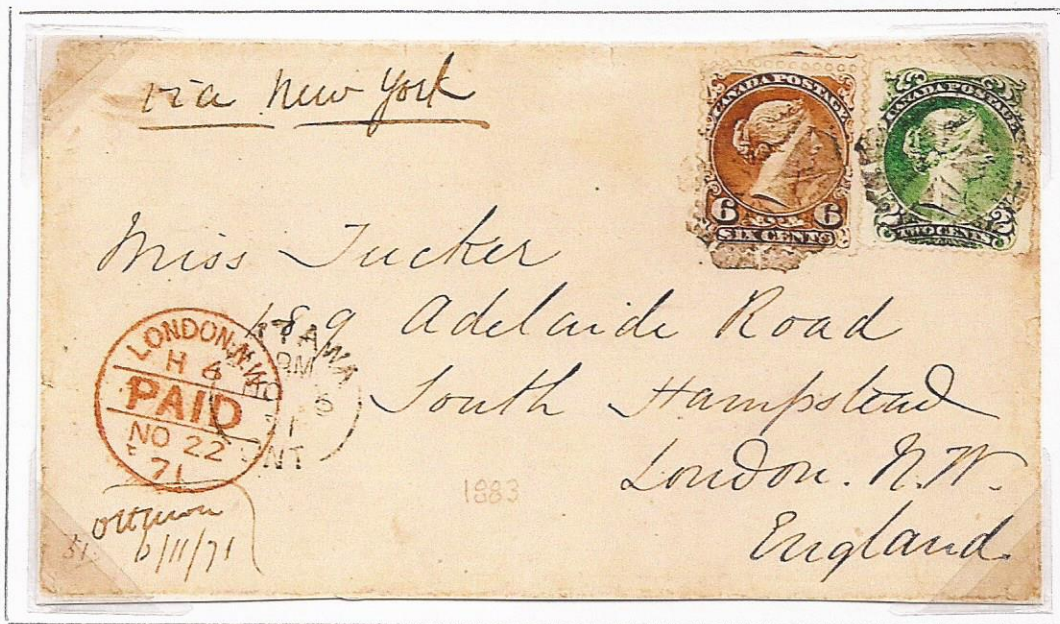 via New York
CANADA POSTAGE
6 6
SIX CENTS
CANADA POSTAGE
2 2
TWO CENTS
Miss Tucker
189 Adelaide Road
South Hampstead
London. N.W.
England.
LONDON.N.W
H 6
PAID
NO 22
71
TTAWA
NT
1883
Ottawa
/11/71